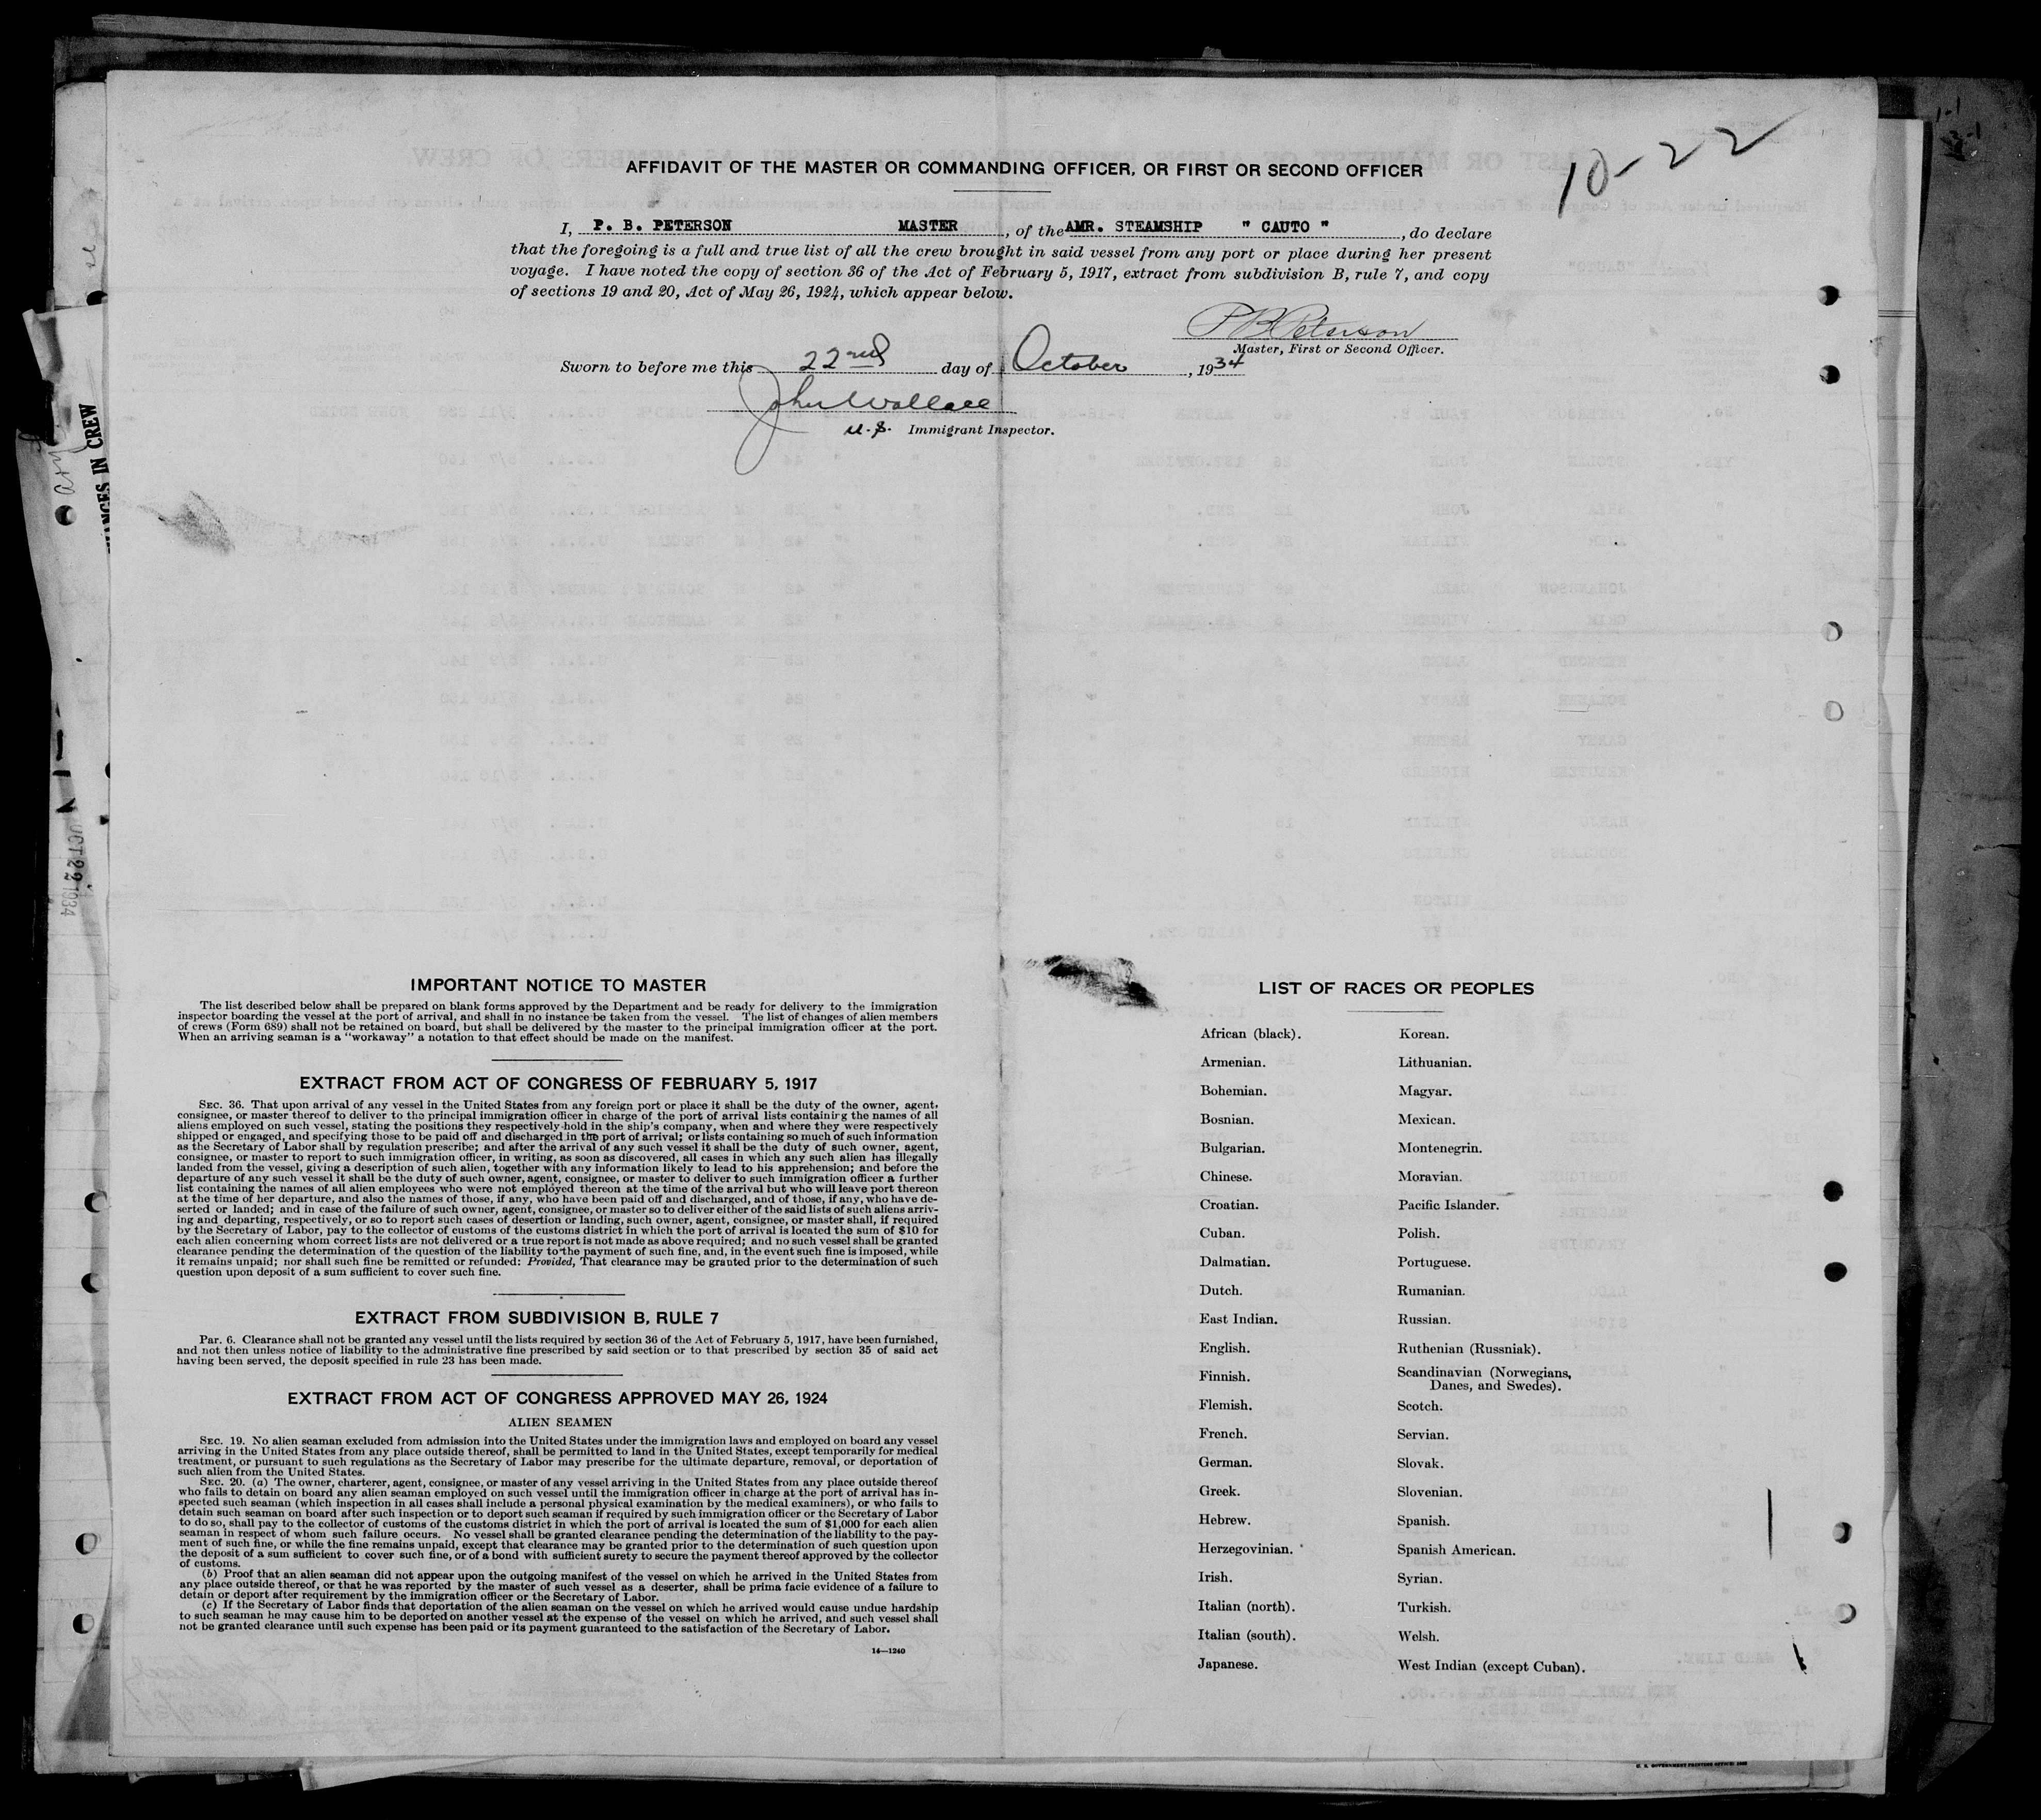 10-22
AFFIDAVIT OF THE MASTER OR COMMANDING OFFICER, OR FIRST OR SECOND OFFICER
I, P. B. PETERSON MASTER, of the AMR. STEAMSHIP " CAUTO ", do declare
that the foregoing is a full and true list of all the crew brought in said vessel from any port or place during her present
voyage. I have noted the copy of section 36 of the Act of February 5, 1917, extract from subdivision B, rule 7, and copy
of sections 19 and 20, Act of May 26, 1924, which appear below.
P B Peterson
Master, First or Second Officer.
Sworn to before me this 22nd day of October, 1934
John Wallace
U.S. Immigrant Inspector.
IMPORTANT NOTICE TO MASTER
The list described below shall be prepared on blank forms approved by the Department and be ready for delivery to the immigration
inspector boarding the vessel at the port of arrival, and shall in no instance be taken from the vessel. The list of changes of alien members
of crews (Form 689) shall not be retained on board, but shall be delivered by the master to the principal immigration officer at the port.
When an arriving seaman is a "workaway" a notation to that effect should be made on the manifest.
EXTRACT FROM ACT OF CONGRESS OF FEBRUARY 5, 1917
SEC. 36. That upon arrival of any vessel in the United States from any foreign port or place it shall be the duty of the owner, agent,
consignee, or master thereof to deliver to the principal immigration officer in charge of the port of arrival lists containing the names of all
aliens employed on such vessel, stating the positions they respectively hold in the ship's company, when and where they were respectively
shipped or engaged, and specifying those to be paid off and discharged in the port of arrival; or lists containing so much of such information
as the Secretary of Labor shall by regulation prescribe; and after the arrival of any such vessel it shall be the duty of such owner, agent,
consignee, or master to report to such immigration officer, in writing, as soon as discovered, all cases in which any such alien has illegally
landed from the vessel, giving a description of such alien, together with any information likely to lead to his apprehension; and before the
departure of any such vessel it shall be the duty of such owner, agent, consignee, or master to deliver to such immigration officer a further
list containing the names of all alien employees who were not employed thereon at the time of the arrival but who will leave port thereon
at the time of her departure, and also the names of those, if any, who have been paid off and discharged, and of those, if any, who have de-
serted or landed; and in case of the failure of such owner, agent, consignee, or master so to deliver either of the said lists of such aliens arriv-
ing and departing, respectively, or so to report such cases of desertion or landing, such owner, agent, consignee, or master shall, if required
by the Secretary of Labor, pay to the collector of customs of the customs district in which the port of arrival is located the sum of $10 for
each alien concerning whom correct lists are not delivered or a true report is not made as above required; and no such vessel shall be granted
clearance pending the determination of the question of the liability to the payment of such fine, and, in the event such fine is imposed, while
it remains unpaid; nor shall such fine be remitted or refunded: Provided, That clearance may be granted prior to the determination of such
question upon deposit of a sum sufficient to cover such fine.
EXTRACT FROM SUBDIVISION B, RULE 7
Par. 6. Clearance shall not be granted any vessel until the lists required by section 36 of the Act of February 5, 1917, have been furnished,
and not then unless notice of liability to the administrative fine prescribed by said section or to that prescribed by section 35 of said act
having been served, the deposit specified in rule 23 has been made.
EXTRACT FROM ACT OF CONGRESS APPROVED MAY 26, 1924
ALIEN SEAMEN
SEC. 19. No alien seaman excluded from admission into the United States under the immigration laws and employed on board any vessel
arriving in the United States from any place outside thereof, shall be permitted to land in the United States, except temporarily for medical
treatment, or pursuant to such regulations as the Secretary of Labor may prescribe for the ultimate departure, removal, or deportation of
such alien from the United States.
SEC. 20. (a) The owner, charterer, agent, consignee, or master of any vessel arriving in the United States from any place outside thereof
who fails to detain on board any alien seaman employed on such vessel until the immigration officer in charge at the port of arrival has in-
spected such seaman (which inspection in all cases shall include a personal physical examination by the medical examiners), or who fails to
detain such seaman on board after such inspection or to deport such seaman if required by such immigration officer or the Secretary of Labor
to do so, shall pay to the collector of customs of the customs district in which the port of arrival is located the sum of $1,000 for each alien
seaman in respect of whom such failure occurs. No vessel shall be granted clearance pending the determination of the liability to the pay-
ment of such fine, or while the fine remains unpaid, except that clearance may be granted prior to the determination of such question upon
the deposit of a sum sufficient to cover such fine, or of a bond with sufficient surety to secure the payment thereof approved by the collector
of customs.
(b) Proof that an alien seaman did not appear upon the outgoing manifest of the vessel on which he arrived in the United States from
any place outside thereof, or that he was reported by the master of such vessel as a deserter, shall be prima facie evidence of a failure to
detain or deport after requirement by the immigration officer or the Secretary of Labor.
(c) If the Secretary of Labor finds that deportation of the alien seaman on the vessel on which he arrived would cause undue hardship
to such seaman he may cause him to be deported on another vessel at the expense of the vessel on which he arrived, and such vessel shall
not be granted clearance until such expense has been paid or its payment guaranteed to the satisfaction of the Secretary of Labor.
14—1240
LIST OF RACES OR PEOPLES
African (black).
Armenian.
Bohemian.
Bosnian.
Bulgarian.
Chinese.
Croatian.
Cuban.
Dalmatian.
Dutch.
East Indian.
English.
Finnish.
Flemish.
French.
German.
Greek.
Hebrew.
Herzegovinian.
Irish.
Italian (north).
Italian (south).
Japanese.
Korean.
Lithuanian.
Magyar.
Mexican.
Montenegrin.
Moravian.
Pacific Islander.
Polish.
Portuguese.
Rumanian.
Russian.
Ruthenian (Russniak).
Scandinavian (Norwegians,
Danes, and Swedes).
Scotch.
Servian.
Slovak.
Slovenian.
Spanish.
Spanish American.
Syrian.
Turkish.
Welsh.
West Indian (except Cuban).
IN CREW
OCT 22 1934
U. S. GOVERNMENT PRINTING OFFICE